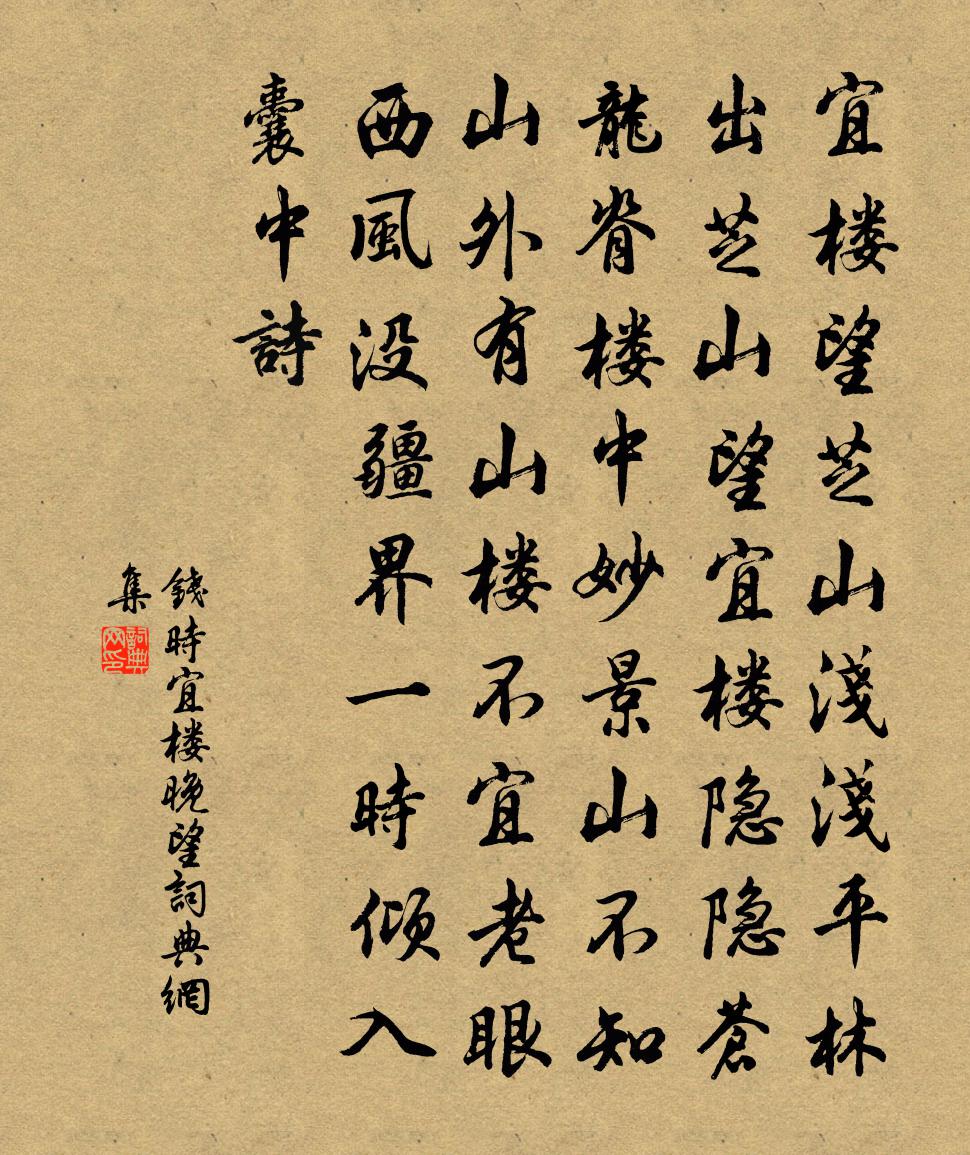 宜楼望芝山淺淺平林
出芝山望宜楼隐隐蒼
龍脊楼中妙景山不知
山外有山楼不宜老眼
西風没疆界一時倾入
囊中詩
錢時宜楼晚望詞典網
集
詞典网印